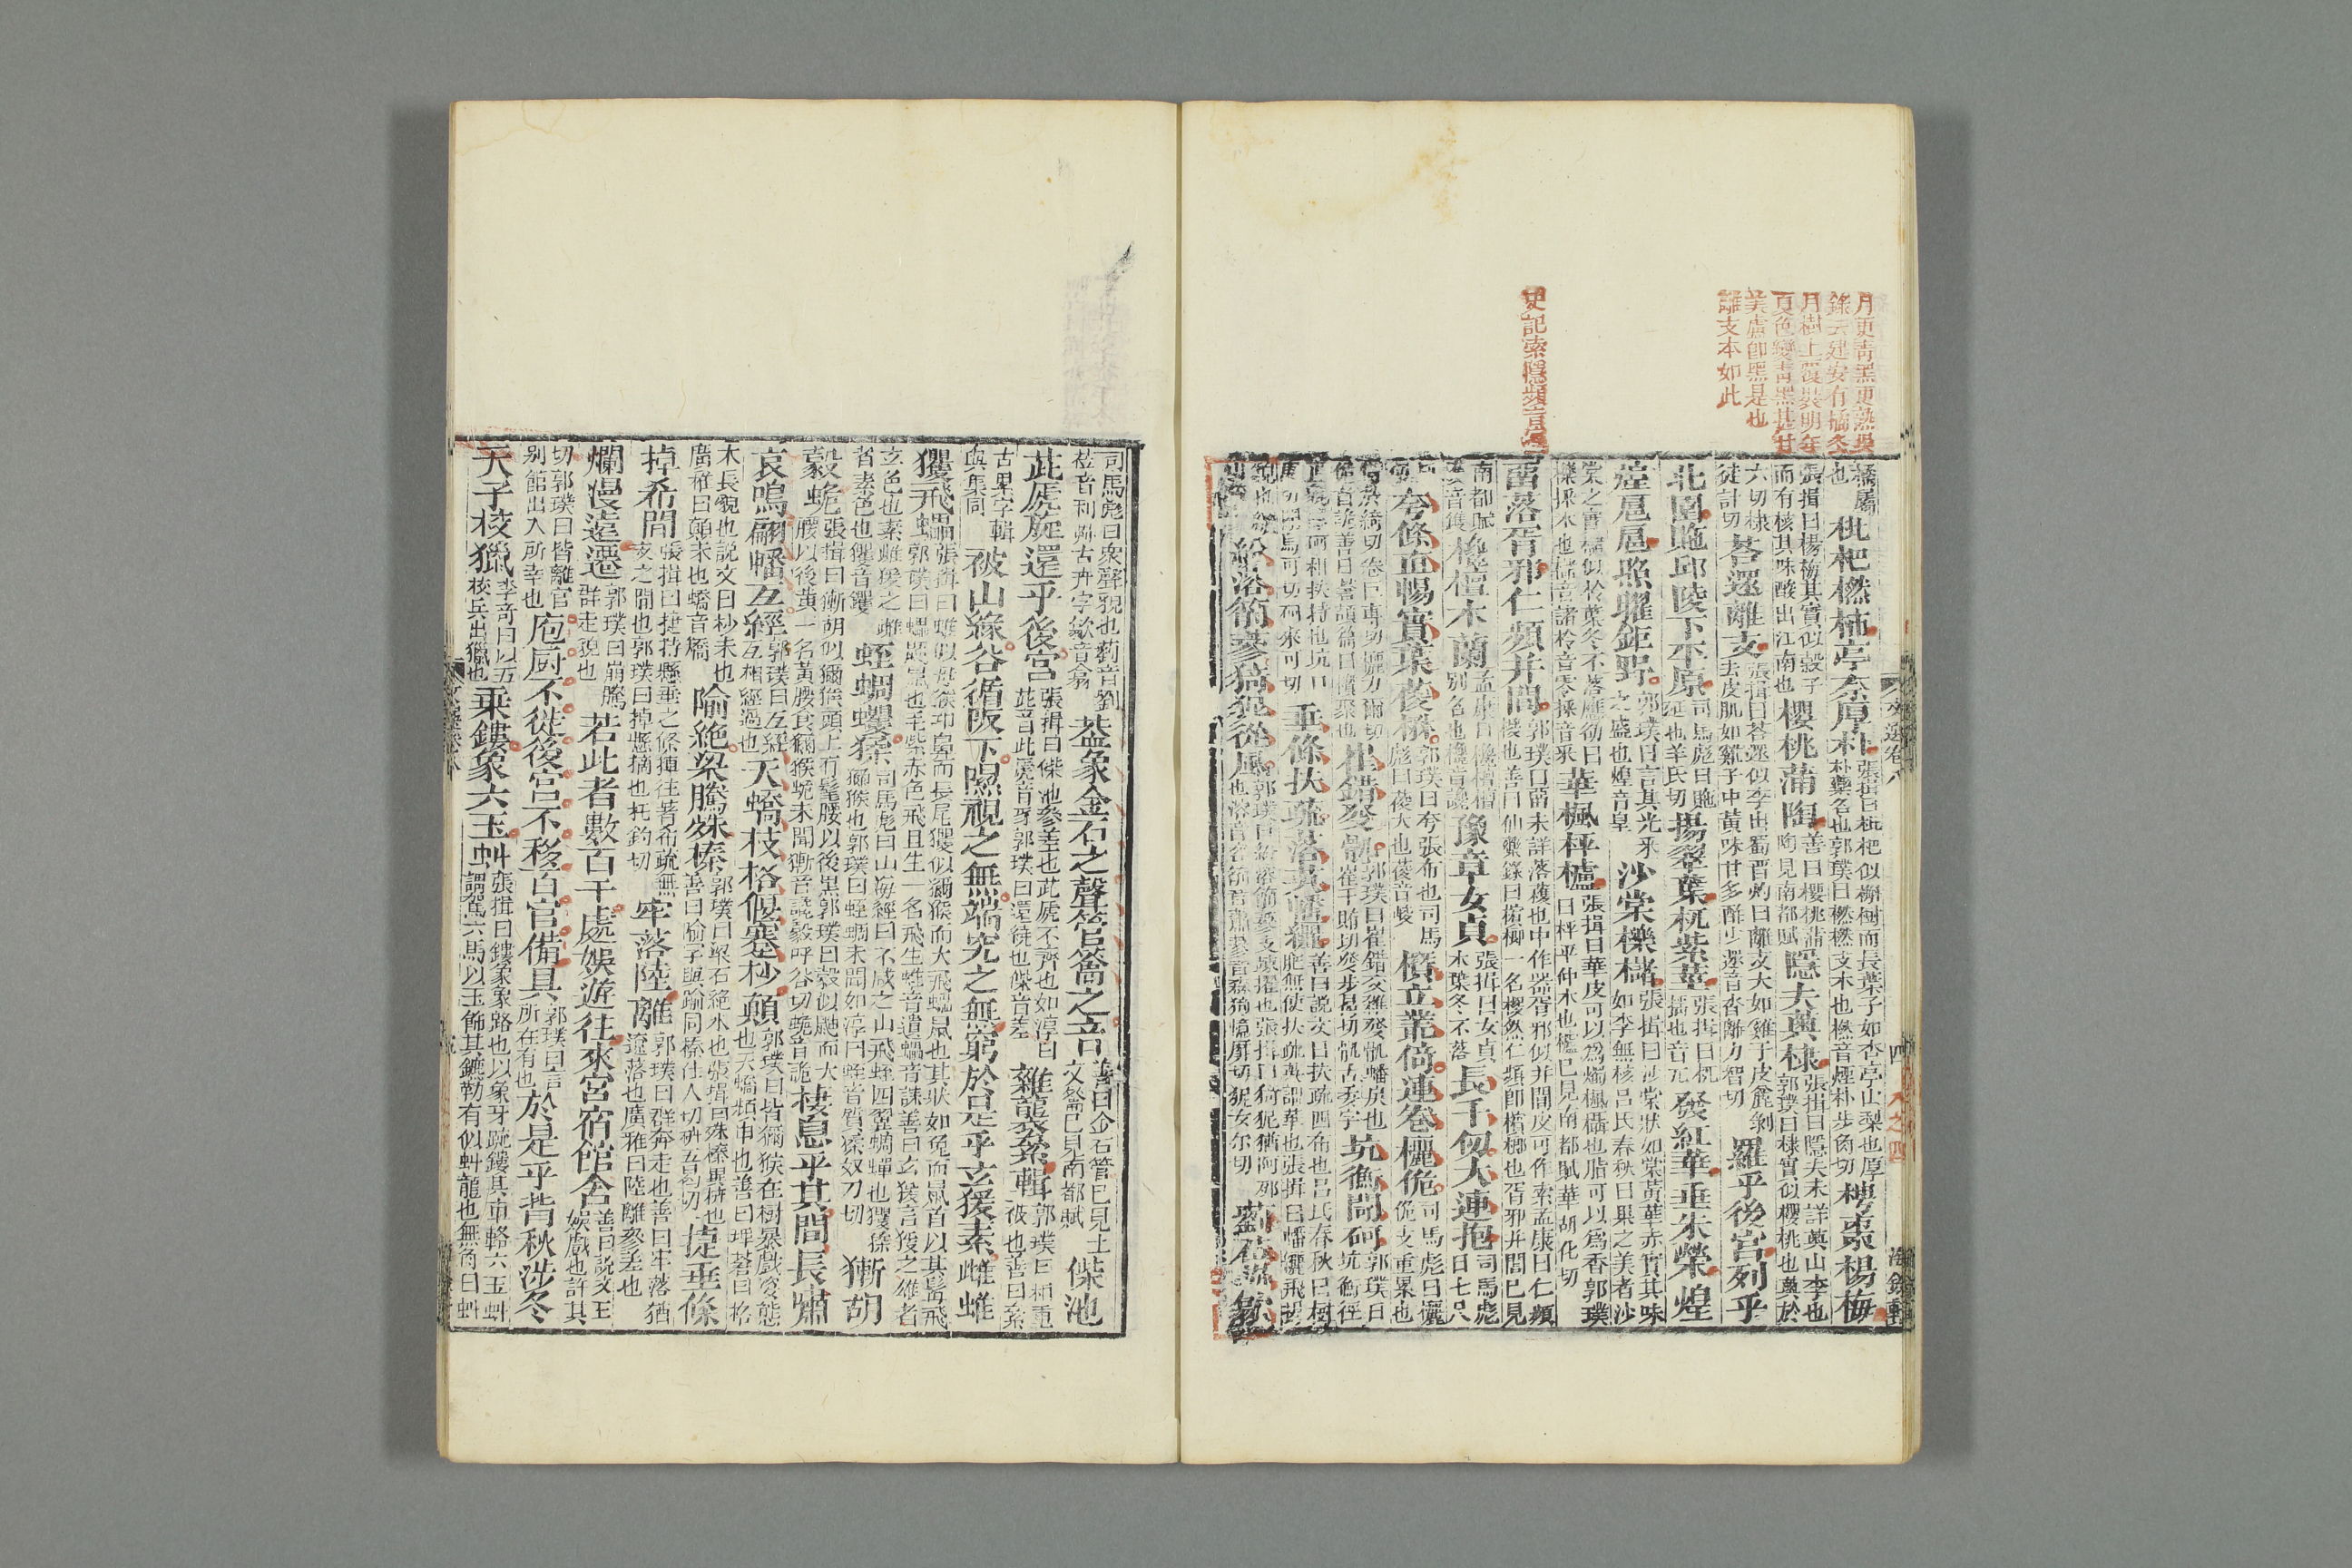 月更青黑更熟吳
錄云建安有橘冬
月樹上覆裹明年
夏色變青黑其甘
美盧卽黑是也
離支本如此
史記索隱頻音賓
文選卷八
四
八之四
海錄軒
橘屬也枇杷橪柿亭柰厚朴張揖曰枇杷似槲樹而長葉子如杏亭山梨也厚朴藥名也郭璞曰橪橪支木也橪音煙朴步角切梬棗楊梅
張揖曰楊梅其實似穀子而有核其味酸出江南也櫻桃蒲陶善曰櫻桃蒲陶見南都賦隱夫薁棣張揖曰隱夫未詳薁山李也郭璞曰棣實似櫻桃也薁於
六切棣徒計切荅遝離支張揖曰荅遝似李出蜀晉灼曰離支大如雞子皮麤剝去皮肌如雞子中黃味甘多酢少遝音沓離力智切羅乎後宮列乎
北園貤邱陵下平原司馬彪曰貤延也羊氏切揚翠葉杌紫莖張揖曰杌搖也音兀發紅華垂朱榮煌
煌扈扈照曜鉅野郭璞曰言其光采之盛也煌音皇沙棠櫟櫧張揖曰沙棠狀如棠黃華赤實其味如李無核呂氏春秋曰果之美者沙
棠之實櫧似柃葉冬不落應劭曰櫟採木也櫧音諸柃音零採音采華楓枰櫨張揖曰華皮可以爲燭楓欇也脂可以爲香郭璞曰枰平仲木也櫨已見南都賦華胡化切
留落胥邪仁頻并閭郭璞曰留未詳落穫也中作器胥邪似并閭皮可作索孟康曰仁頻椶也善曰仙藥錄曰檳榔一名椶然仁頻卽檳榔也胥邪并閭已見
南都賦欃檀木蘭孟康曰欃檀檀別名也欃音讒豫章女貞張揖曰女貞木葉冬不落長千仞大連抱司馬彪曰七尺
夸條直暢實葉葰楙郭璞曰夸張布也司馬彪曰葰大也葰音峻欑立叢倚連卷欐佹司馬彪曰欐佹支重累也
崔錯癹骫郭璞曰崔錯交雜癹骫蟠戾也崔千賄切癹步葛切骫古委字坑衡閜砢郭璞曰坑衡徑
垂條扶疏落英幡纚善曰說文曰扶疏四布也呂氏春秋曰樹肥無使扶疏英謂華也張揖曰幡纚飛揚
紛溶箾蔘猗狔從風藰莅芔歙
司馬彪曰衆聲貌也藰音劉莅音利芔古卉字歙音翕蓋象金石之聲管籥之音善曰金石管已見上文籥已見南都賦偨池
茈虒旋還乎後宮張揖曰偨池參差也茈虒不齊也如淳曰茈音此虒音豸郭璞曰還徒也偨音差雜襲絫輯郭璞曰相重被也善曰絫
古累字輯與集同被山緣谷循阪下隰視之無端究之無窮於是乎玄猨素雌蜼
玃飛蠝張揖曰蜼似母猴卬鼻而長尾玃似獼猴而大飛蠝鼠也其狀如兔而鼠首以其髯飛郭璞曰蠝鼯鼠也毛紫赤色飛且生一名飛生蜼音遺蠝音誄善曰玄猨言猨之雄者
玄色也素雌猨之雌者素色也玃音钁蛭蜩蠼猱司馬彪曰山海經曰不咸之山飛蛭四翼蜩蟬也玃猱獼猴也郭璞曰蛭蜩未聞如淳曰蛭音質猱奴刀切獑胡
豰蛫張揖曰獑胡似獼猴頭上有髦腰以後黑郭璞曰豰似鼬而大腰以後黃一名黃腰食獼猴蛫未聞獑音讒豰呼谷切蛫音詭棲息乎其間長嘯
哀鳴翩幡互經郭璞曰互經互相經過也夭蟜枝格偃蹇杪顛郭璞曰皆獼猴在樹暴戲姿態也夭蟜頻申也善曰埤蒼曰格
木長貌也說文曰杪末也廣雅曰顛末也蟜音矯隃絕梁騰殊榛郭璞曰梁石絕水也張揖曰殊榛異枿也善曰隃字與踰同榛仕人切枿五葛切捷垂條
掉希間張揖曰捷持懸垂之條揮往著希疏無支之間也郭璞曰掉懸擿也牢落陸離郭璞曰群奔走也善曰牢落猶遼落也廣雅曰陸離參差也
爛漫遠遷郭璞曰崩騰群走貌也若此者數百千處娛遊往來宮宿館舍善曰說文曰娛戲也許其
切郭璞曰皆離宮別館出入所幸也庖廚不徙後宮不移百官備具郭璞曰言所在有也於是乎背秋涉冬
天子校獵李奇曰以五校兵出獵也乘鏤象六玉虯張揖曰鏤象象路也以象牙疏鏤其車輅六玉虯謂駕六馬以玉飾其鑣勒有似虯龍也無角曰虯